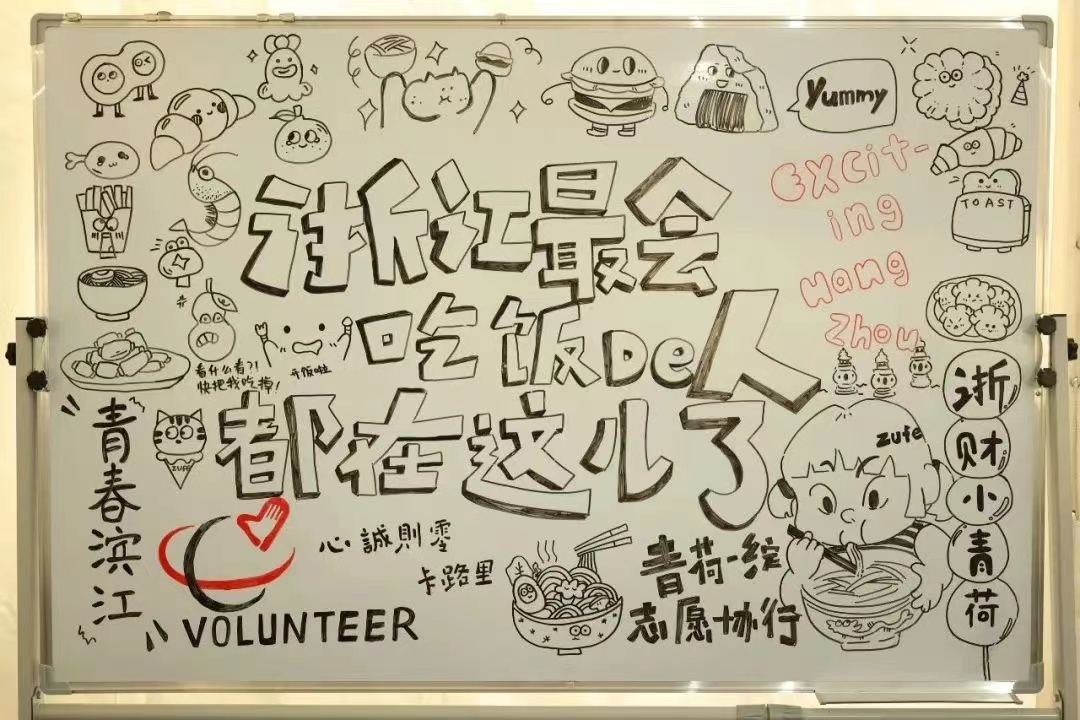 Yummy
Excit-
ing
Hang
Zhou
TOAST
浙江最会
吃饭De人
都在这儿了
看什么看?!
快把我吃掉!
开饭啦
青春滨江
ZUFE
zufe
浙财小青荷
心誠則零
卡路里
VOLUNTEER
青荷一绽
志愿协行